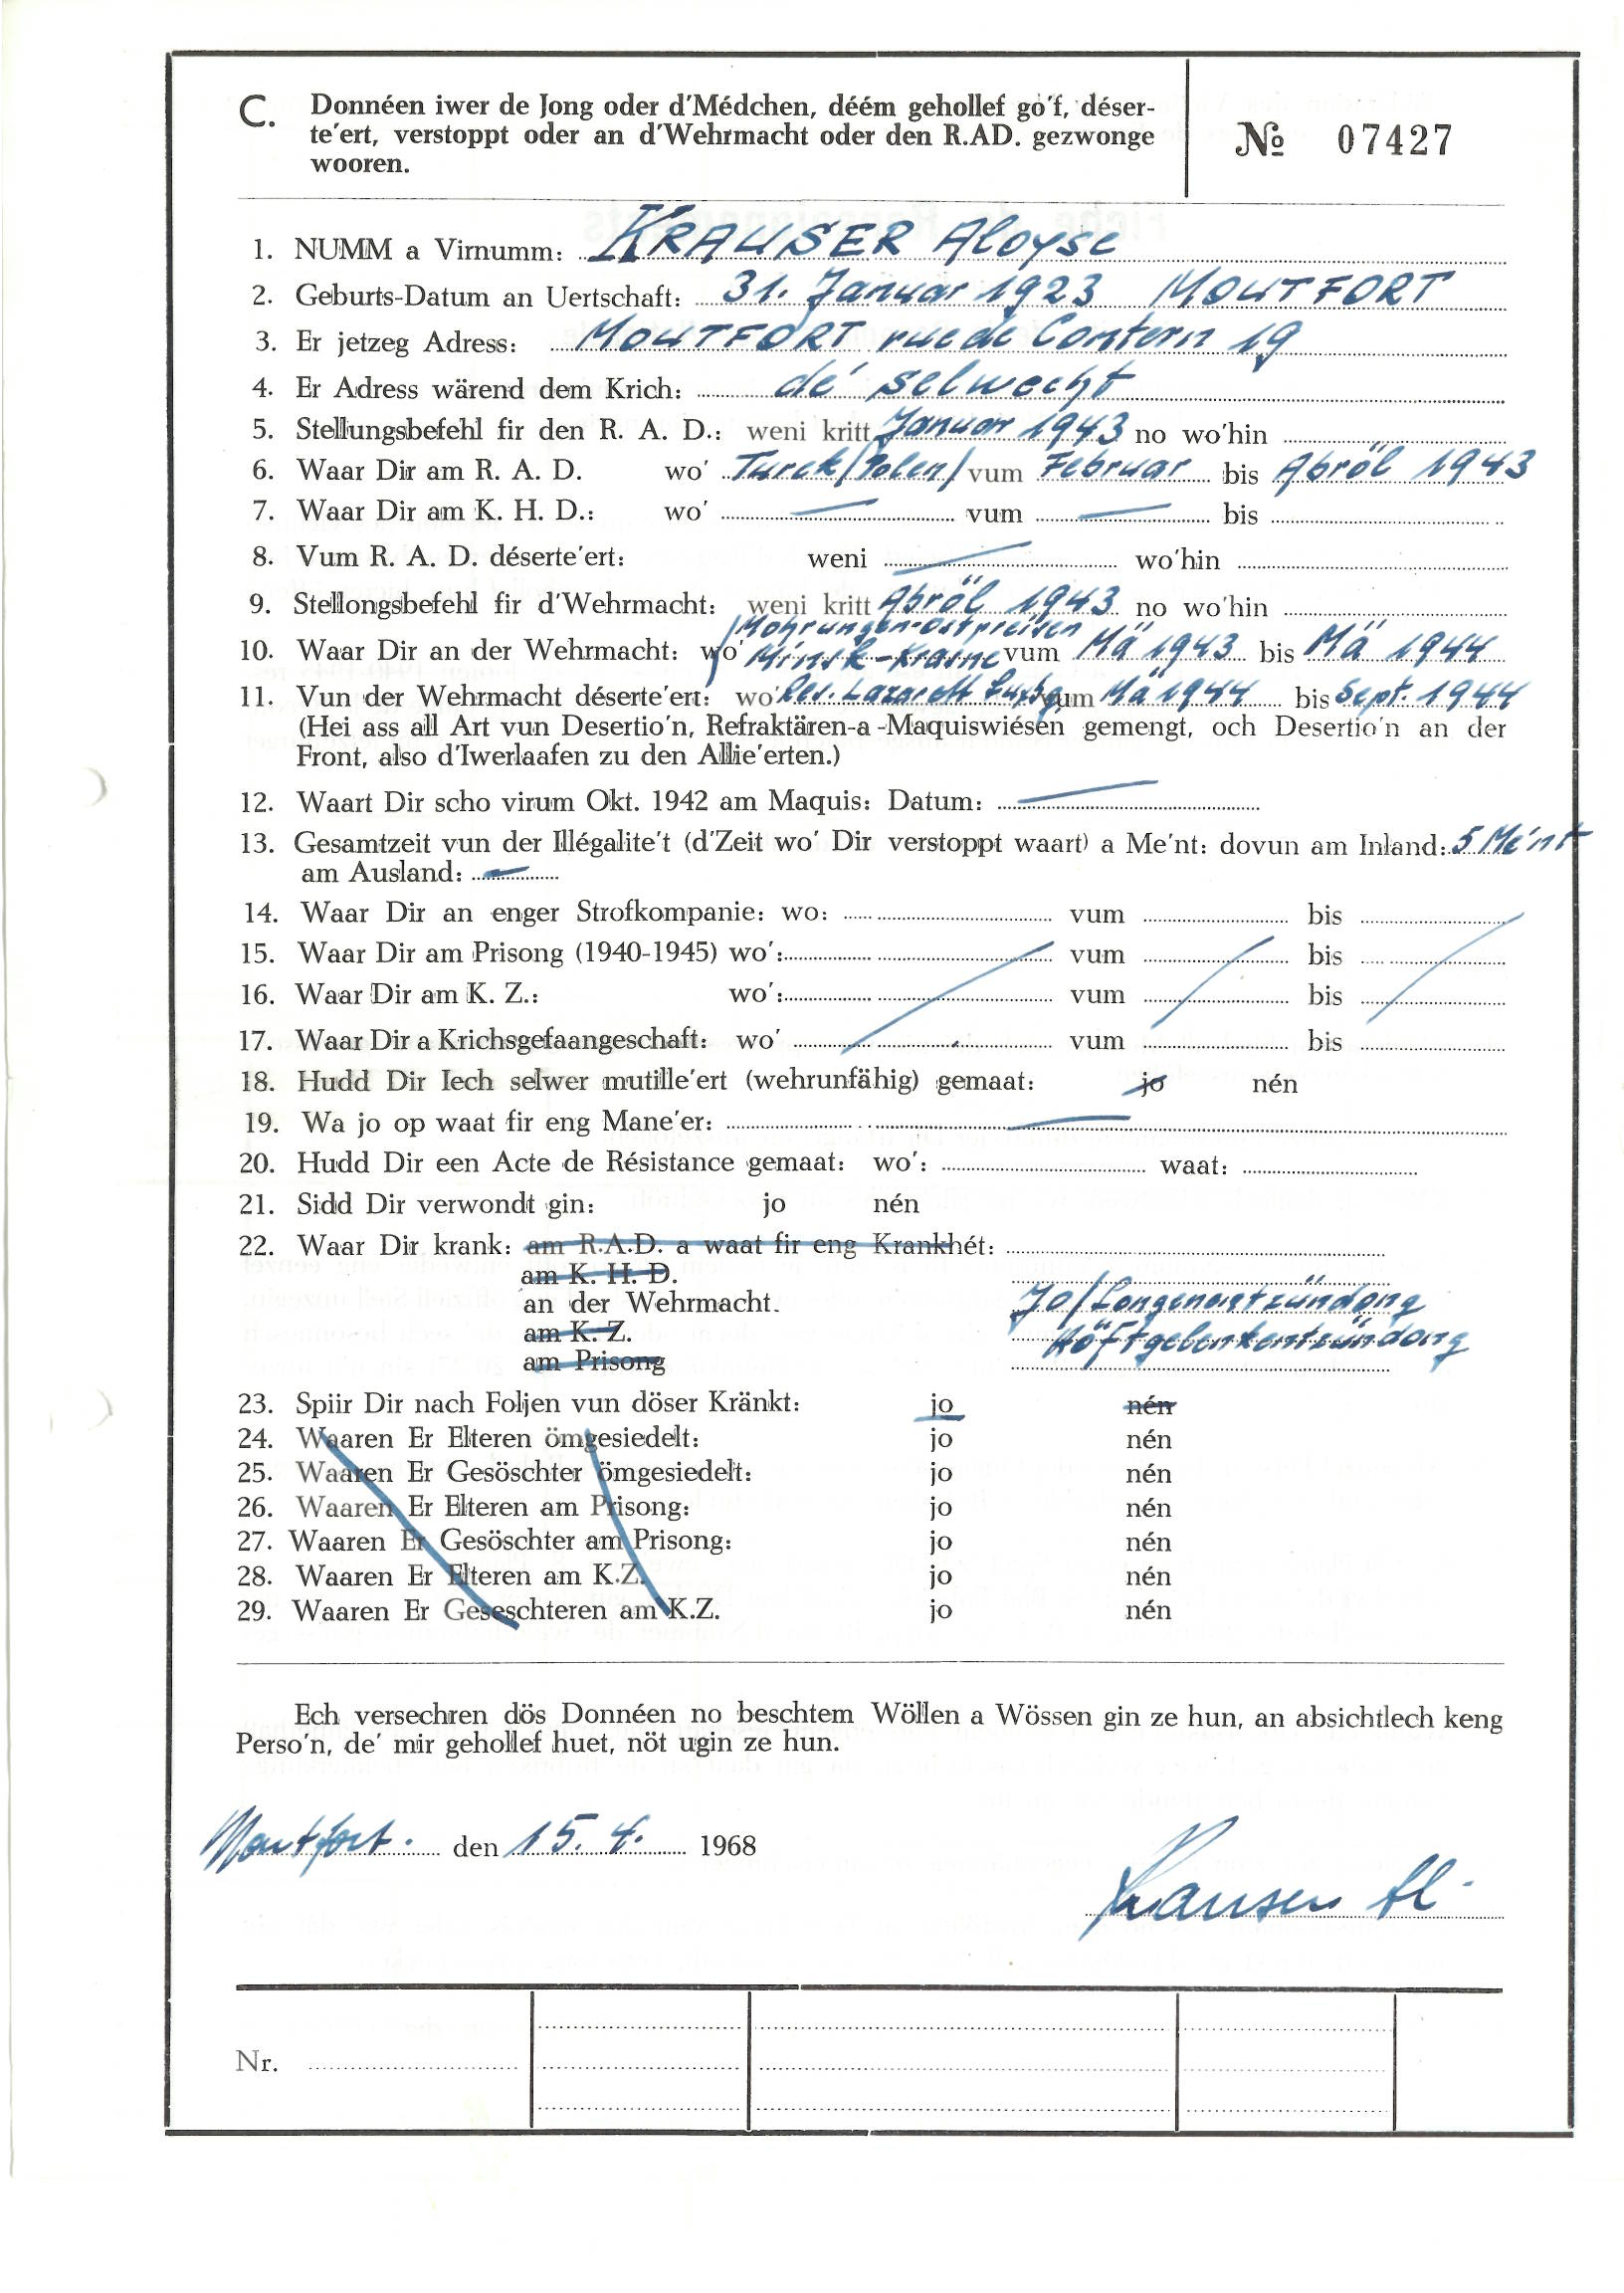 C. Donnéen iwer de Jong oder d'Médchen, déém gehollef go'f, déser-
te'ert, verstoppt oder an d'Wehrmacht oder den R.AD. gezwonge
wooren.
№ 07427
1. NUMM a Virnumm: KRAUSER Aloyse
2. Geburts-Datum an Uertschaft: 31. Januar 1923 MOUTFORT
3. Er jetzeg Adress: MOUTFORT rue de Contern 19
4. Er Adress wärend dem Krich: dé selwecht
5. Stellungsbefehl fir den R. A. D.: weni kritt Januar 1943 no wo'hin
6. Waar Dir am R. A. D. wo' Turek/Polen/ vum Februar bis Abröl 1943
7. Waar Dir am K. H. D.: wo' — vum — bis
8. Vum R. A. D. déserte'ert: weni — wo'hin
9. Stellongsbefehl fir d'Wehrmacht: weni kritt Abröl 1943 no wo'hin
Mohrungen-Ostpreisen
10. Waar Dir an der Wehrmacht: wo' Minsk-Krasne vum Mä 1943 bis Mä 1944
11. Vun der Wehrmacht déserte'ert: wo' Res. Lazarett Luxbg. vum Mä 1944 bis Sept. 1944
(Hei ass all Art vun Desertio'n, Refraktären-a -Maquiswiésen gemengt, och Desertio'n an der
Front, also d'Iwerlaafen zu den Allie'erten.)
12. Waart Dir scho virum Okt. 1942 am Maquis: Datum: —
13. Gesamtzeit vun der Illégalite't (d'Zeit wo' Dir verstoppt waart) a Me'nt: dovun am Inland: 5 Mé'nt
am Ausland: —
14. Waar Dir an enger Strofkompanie: wo: vum bis
15. Waar Dir am Prisong (1940-1945) wo': vum bis
16. Waar Dir am K. Z.: wo': vum bis
17. Waar Dir a Krichsgefaangeschaft: wo' vum bis
18. Hudd Dir Iech selwer mutille'ert (wehrunfähig) gemaat: jo nén
19. Wa jo op waat fir eng Mane'er: —
20. Hudd Dir een Acte de Résistance gemaat: wo': waat:
21. Sidd Dir verwondt gin: jo nén
22. Waar Dir krank: am R.A.D. a waat fir eng Krankhét:
am K. H. D.
an der Wehrmacht. Jo/Longenentzündong
am K. Z. Höftgelenkentzündong
am Prisong
23. Spiir Dir nach Foljen vun döser Kränkt: jo nén
24. Waaren Er Elteren ömgesiedelt: jo nén
25. Waaren Er Gesöschter ömgesiedelt: jo nén
26. Waaren Er Elteren am Prisong: jo nén
27. Waaren Er Gesöschter am Prisong: jo nén
28. Waaren Er Elteren am K.Z. jo nén
29. Waaren Er Geseschteren am K.Z. jo nén
Ech versechren dös Donnéen no beschtem Wöllen a Wössen gin ze hun, an absichtlech keng
Perso'n, de' mir gehollef huet, nöt ugin ze hun.
Moutfort. den 15. 4. 1968
Krauser Al.
Nr.